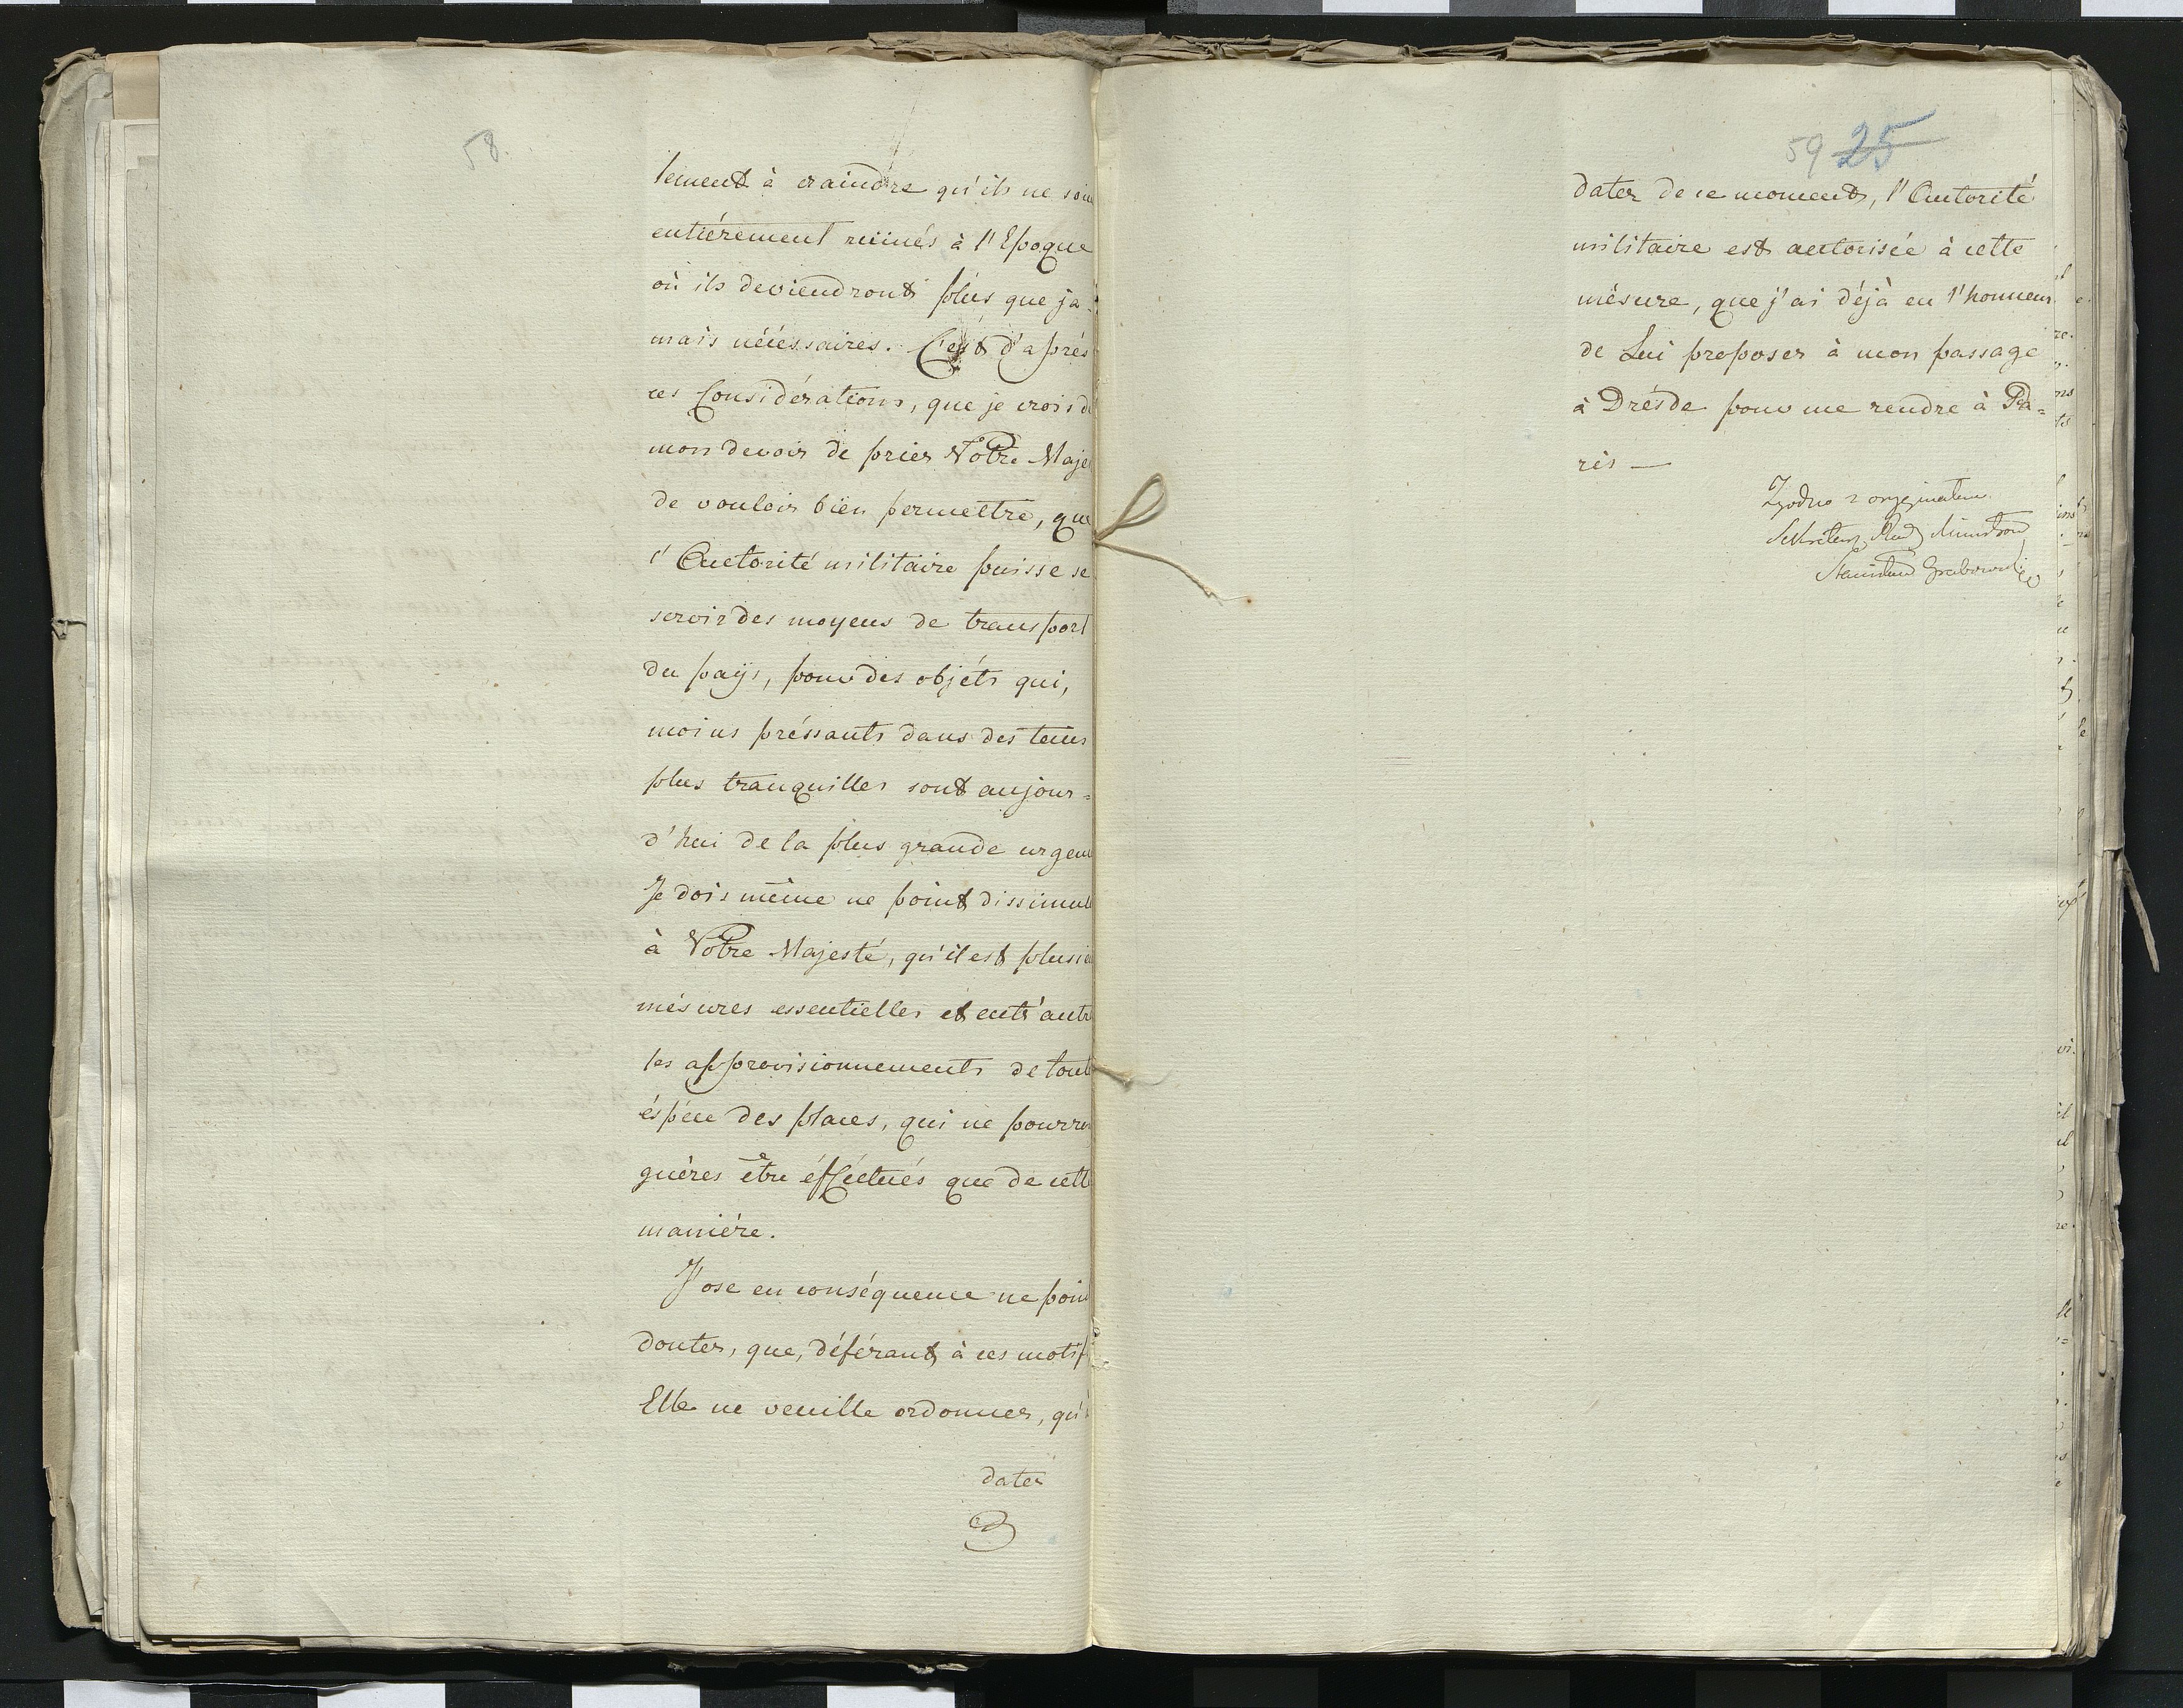 58.
lement à craindre qu'ils ne soie
entiérement ruinés à l'Epoque
où ils deviendront plus que ja-
mais nécéssaires. C'est d'aprés
ces Considérations, que je crois de
mon devoir de prier Votre Maje
de vouloir bien permettre, que
l'Autorité militaire puisse se
servir des moyens de transport
du pays, pour des objéts qui,
moins préssants dans des tems
plus tranquilles sont aujour=
d'hui de la plus grande urgen
Je dois même ne point dissimul
à Votre Majesté, qu'il est plusie
mésures essentielles et entr'autr
les approvisionnements de tout
éspéce des places, qui ne pourro
guères être éfféctués que de cett
maniére.
J'ose en conséquence ne poin
douter, que, déférant à ces motif
Elle ne veuille ordonner, qu'
dater
59 25
dater de ce moment, l'Autorité
militaire est autorisée à cette
mésure, que j'ai déjà eu l'honneur
de Lui proposer à mon passage
à Drésde pour me rendre à Pa=
ris —
Zgodno z oryginałem
Sekretarz Rady Ministrów
Stanisław Grabowski